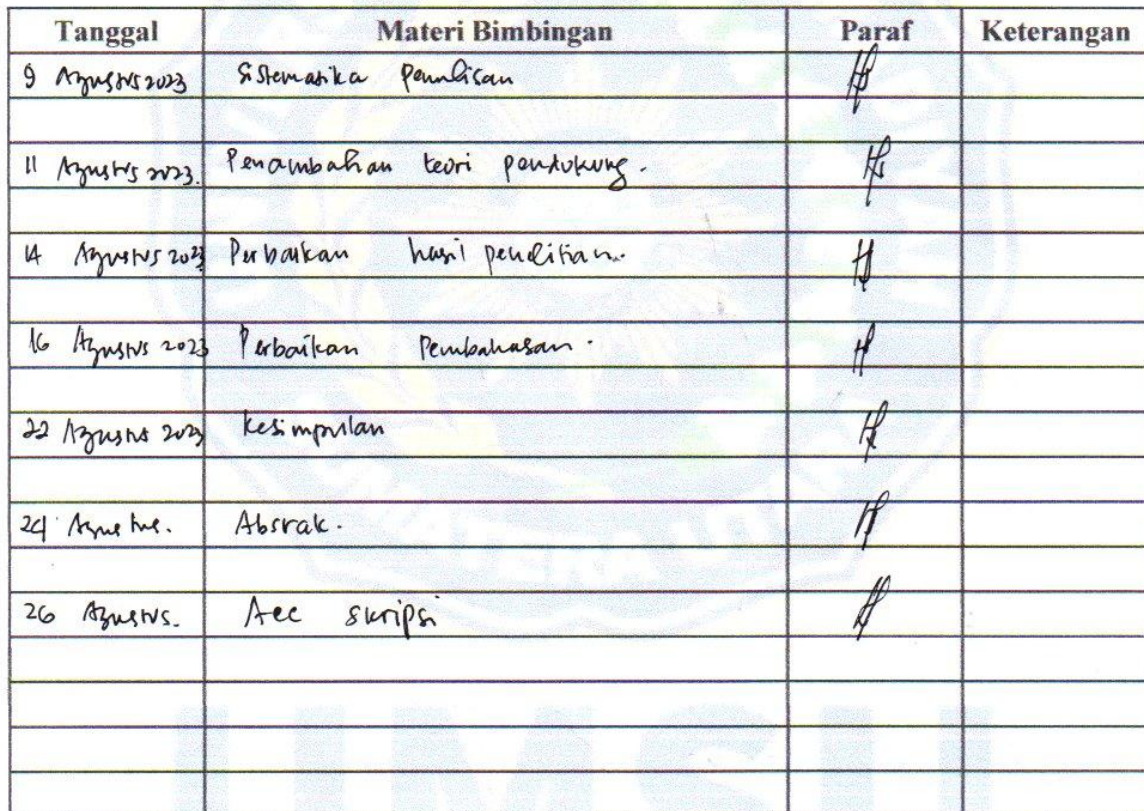 Tanggal Materi Bimbingan Paraf Keterangan
9 Agustus 2023 Sistematika penulisan
11 Agustus 2023. Penambahan teori pendukung.
14 Agustus 2023 Perbaikan hasil penelitian.
16 Agustus 2023 Perbaikan Pembahasan.
22 Agustus 2023 kesimpulan
24 Agustus. Absrak.
26 Agustus. Acc skripsi
UMSU